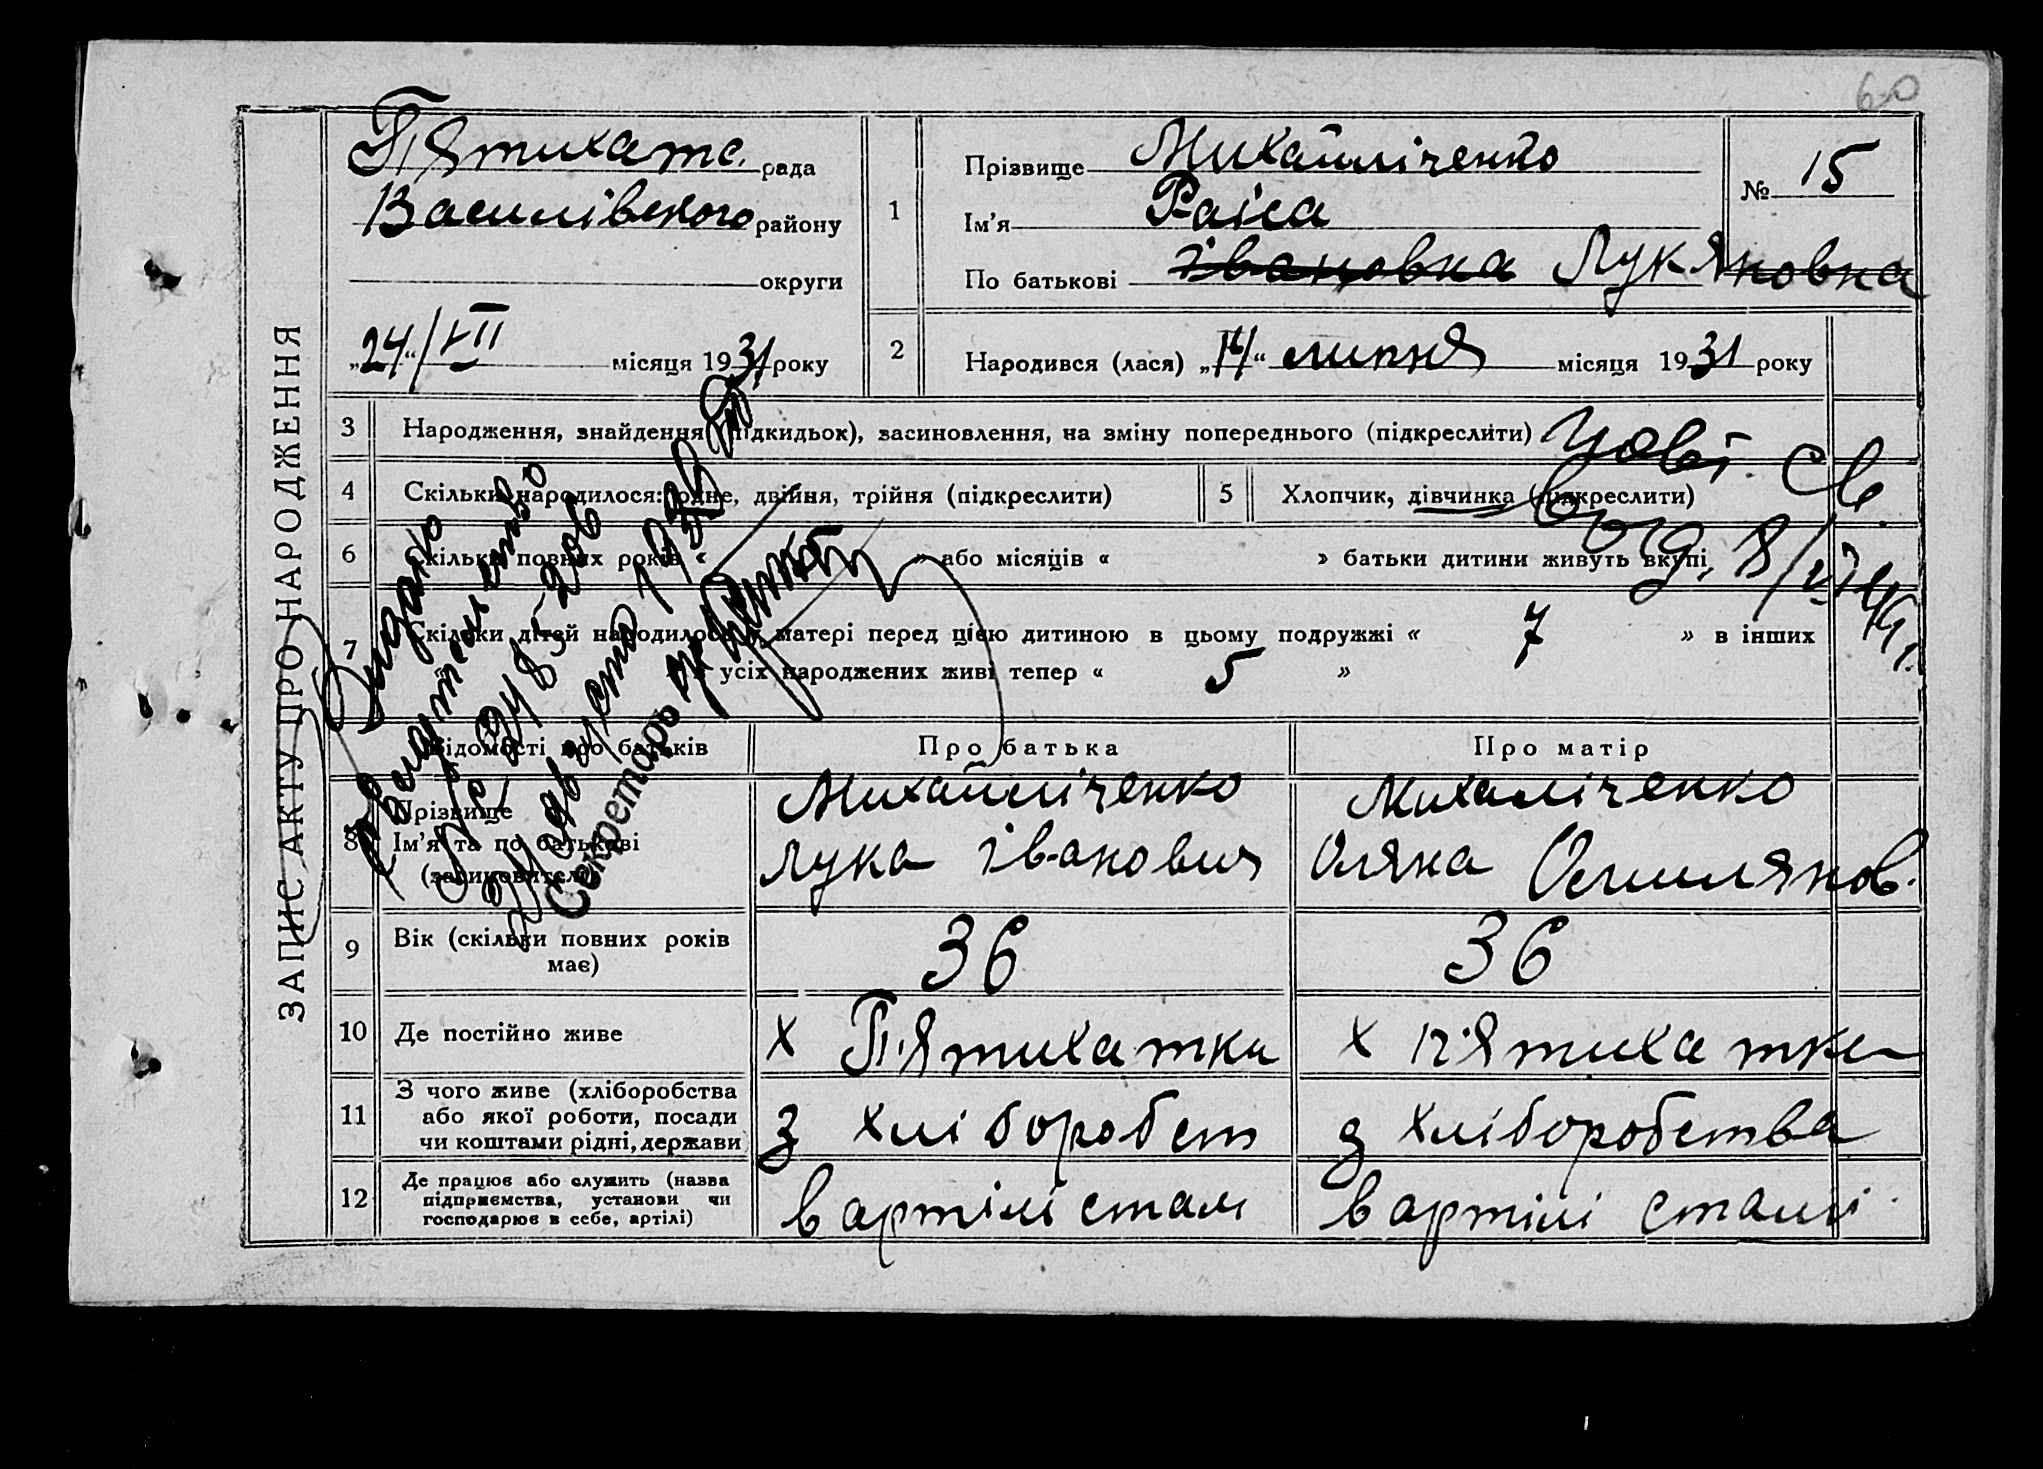 60
ЗАПИС АКТУ ПРО НАРОДЖЕННЯ
П'ятихатс. рада
Василівського району
округи
„24“/VII місяця 1931 року
1
Прізвище Михайліченко
Ім'я Раіса
По батькові івановна Лукяновна
№ 15
2
Народився (лася) „14“ липня місяця 1931 року
3 Народження, знайдення (підкидьок), засиновлення, на зміну попереднього (підкреслити)
4 Скільки народилося: одне, двійня, трійня (підкреслити)
5 Хлопчик, дівчинка (підкреслити)
6 Скільки повних років « » або місяців « » батьки дитини живуть вкупі
7 Скільки дітей народилося у матері перед цією дитиною в цьому подружжі « 7 » в інших
усіх народжених живі тепер « 5 »
Видано
Секретарь
Відомості про батьків
Про батька
Про матір
8 Прізвище
Ім'я та по батькові
(засиновителів)
Михайліченко
Лука іванович
Михаліченко
Оляна
9 Вік (скільки повних років має)
36
36
10 Де постійно живе
х П'ятихатки
х п'ятихатки
11 З чого живе (хліборобства або якої роботи, посади чи коштами рідні, держави
з хліборобст
з хліборобства
12 Де працює або служить (назва підприємства, установи чи господарює в себе, артілі)
в артілі стал
в артілі